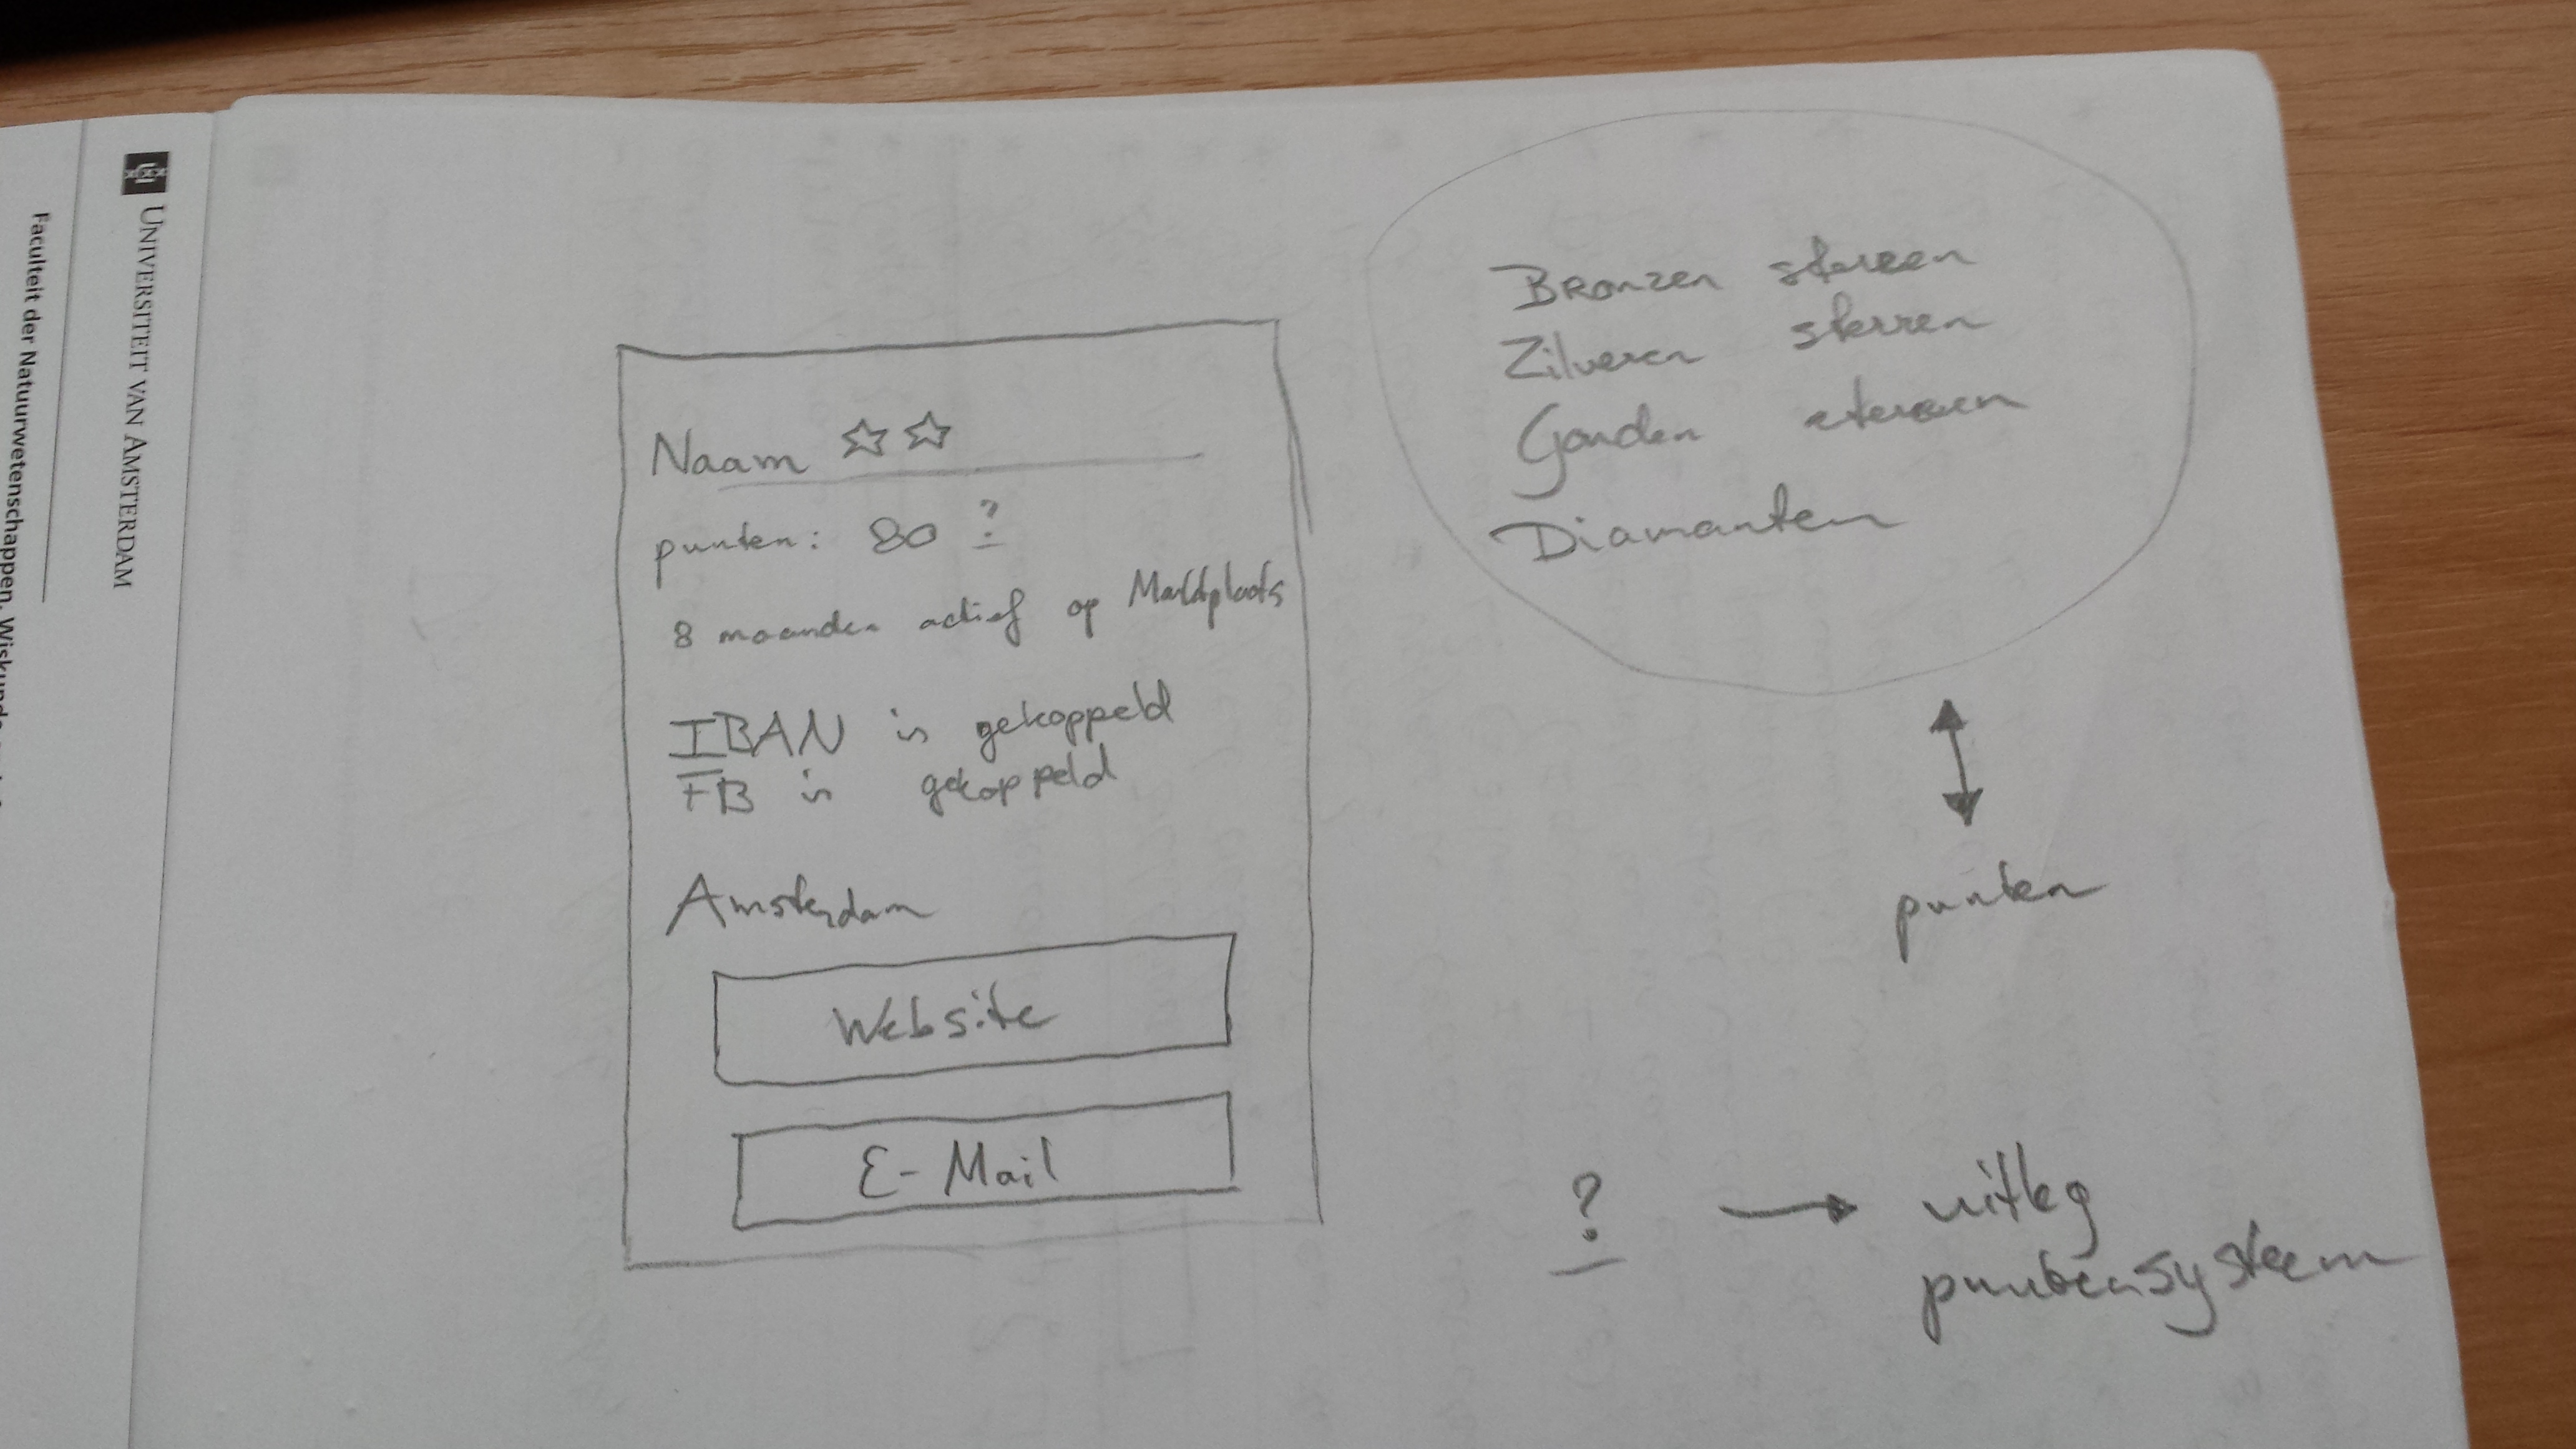 UNIVERSITEIT VAN AMSTERDAM
Faculteit der Natuurwetenschappen, Wiskunde
Naam
punten: 80 ?
8 maanden actief op Marktplaats
IBAN is gekoppeld
FB is gekoppeld
Amsterdam
Website
E-Mail
Bronzen sterren
Zilveren sterren
Gouden sterren
Diamanten
punten
? → uitleg
puntensysteem